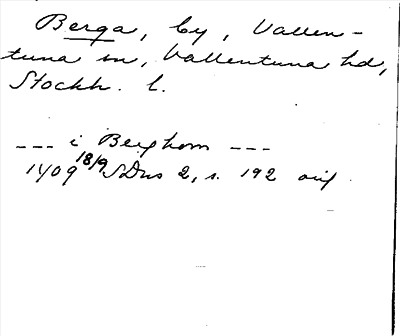 Berga, by, Vallen-
tuna sn, Vallentuna hd,
Stockh. l.
--- i Berghom ---
1409 18/9 SDns 2, s. 192 orig.